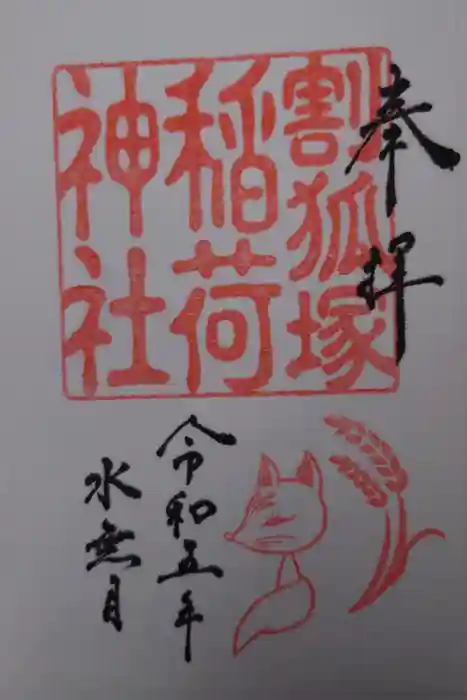 奉拝
割狐塚
稲荷
神社
令和五年
水無月